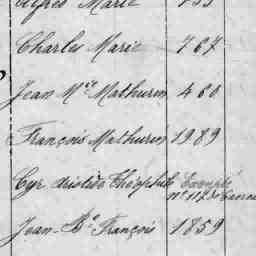 Alfred Marie
Charles Marie 767
Jean M.el Mathurin 460
François Mathurin 1989
Cyr Aristide Théophile Exempté
n° 117 de
Jean-Bte François 1859